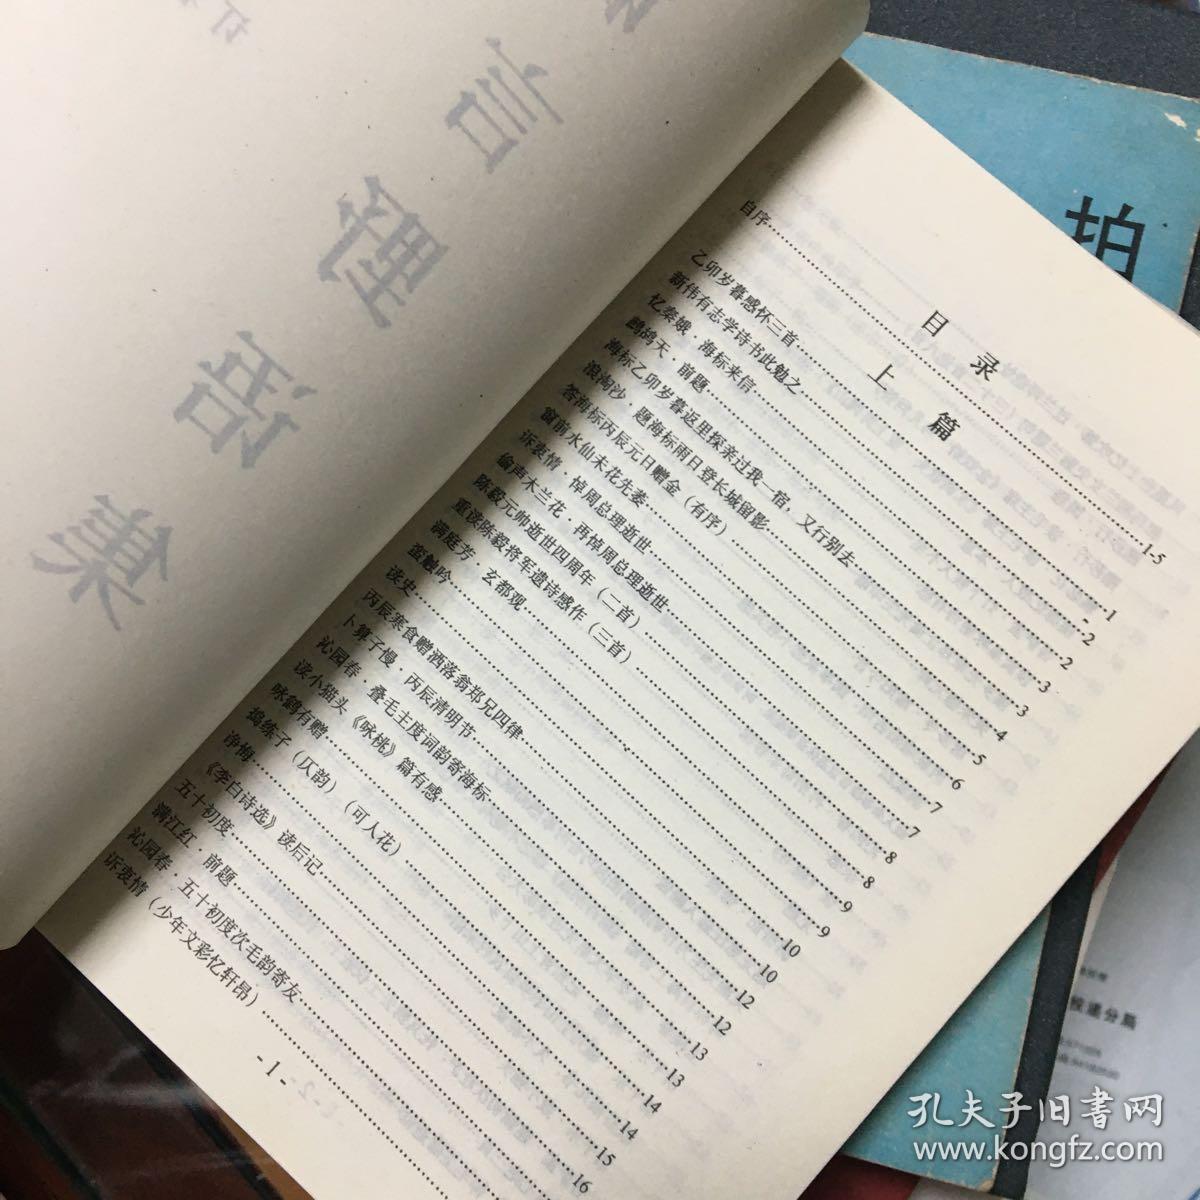 目 录
自序 1-5
上 篇
乙卯岁暮感怀三首 1
新伟有志学诗书此勉之 2
忆秦娥·海标来信 2
鹧鸪天·前题 3
海标乙卯岁暮返里探亲过我一宿，又行别去 3
浪淘沙·题海标雨日登长城留影 4
答海标丙辰元日赠金（有序） 5
窗前水仙未花先萎 6
诉衷情·悼周总理逝世 7
偷声木兰花·再悼周总理逝世 7
陈毅元帅逝世四周年（二首） 8
重读陈毅将军遗诗感作（三首） 8
满庭芳·玄都观 9
蛮触吟 9
读史 10
丙辰寒食赠洒落翁郑兄四律 10
卜算子慢·丙辰清明节 12
沁园春·叠毛主度词韵寄海标 12
读小猫头《咏桃》篇有感 13
咏鹤有赠 13
捣练子（仄韵）（可人花） 14
净悔 14
《李白诗选》读后记 15
五十初度 16
满江红·前题
沁园春·五十初度次毛韵寄友
诉衷情（少年文彩忆轩昂）
- 1 -
言
野
语
集
拍
投递分局
孔夫子旧书网
www.kongfz.com